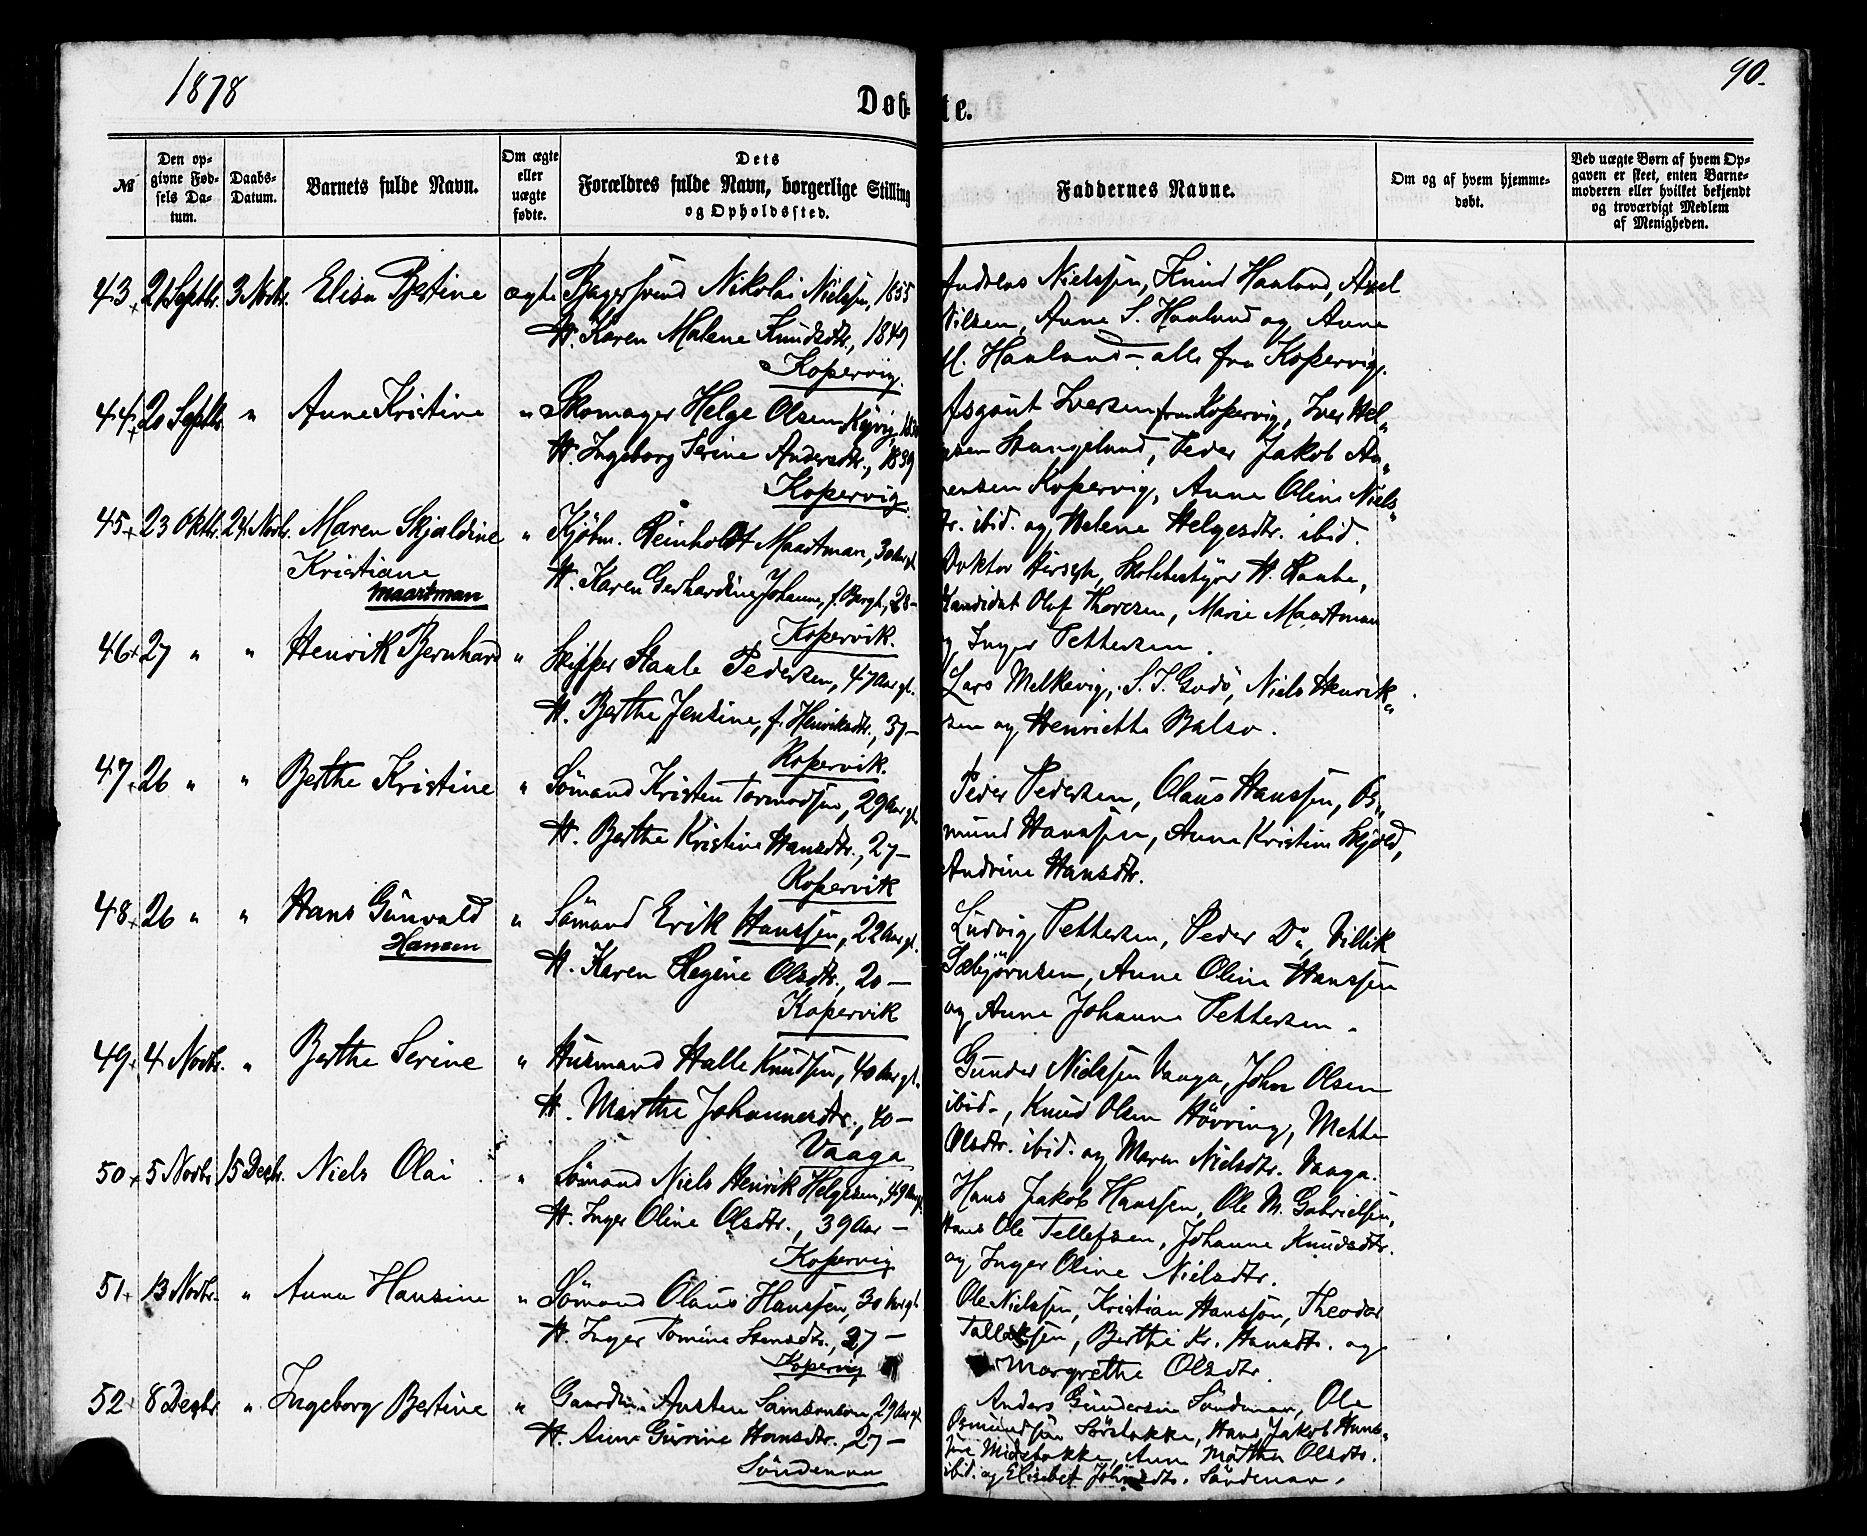 1878
90.
Døbte.
№
Den opgivne Fødsels Datum.
Daabs-Datum.
Barnets fulde Navn.
Om ægte eller uægte fødte.
Dets Forældres fulde Navn, borgerlige Stilling og Opholdssted.
Faddernes Navne.
Om og af hvem hjemmedøbt.
Ved uægte Børn af hvem Opgaven er skeet, enten Barnemoderen eller hvilket bekjendt og troværdigt Medlem af Menigheden.
43 21 Septbr. 3 Novbr. Elisa Bertine ægte Bagersvend Nikolai Nielssen, 1855
H. Karen Malene Knudsdtr., 1849
Kopervig.
Andreas Nielssen, Knud Haaland, Axel
Nilsen, Anne S. Haaland og Anne
M. Haaland – alle fra Kopervig.
44 20 Septbr. " Anne Kristine " Skomager Helge Olsen
H. Ingeborg Serine Andersdtr., 1839
Kopervig
Asgaut Iversen fra Kopervig, Iver Hel-
gesen Stangeland, Peder Jakob An-
densen Kopervig, Anne Oline Niels-
dtr. ibid. og Helene Helgesdtr. ibid.
45 23 Oktbr. 24 Novbr. Maren Skjoldine " Kjöbm. Reinholdt Maartman, 30 Aar gl.
Kristiane
Maartman
H. Karen Gerhardine Johanne, f. Bergh, 28 –
Kopervik.
Doktor Hirsch, Skolebestyrer H. Raabe,
Kandidat Olaf Thoresen, Marie Maartman
og Inger Pettersen.
46 27 " " Henrik Bernhard " Skipper Staale Pedersen, 47 Aar gl.
H. Berthe Jensine, f. Henriksdtr., 37 –
Kopervik.
Lars Melkevig, S. J. Godö, Niels Henrik-
sen og Henriette Balso.
47 26 " " Berthe Kristine " Sömand Kristen Tormodsen, 29 Aar gl.
H. Berthe Kristine Hansdtr., 27 –
Kopervik
Peder Pedersen, Olaus Hanssen, Os-
mund Hanssen, Anne Kristine Skjold,
Andrine Hansdtr.
48 26 " " Hans Gunvald " Sömand Erik Hanssen, 22 Aar gl.
Hansen
H. Karen Regine Olsdtr., 20 –
Kopervik
Ludvig Pettersen, Peder Do, Villik
Sæbjörnsen, Anne Oline Hanssen
og Anne Johanne Pettersen.
49 4 Novbr. " Berthe Serine " Husmand Halle Knudsen, 40 Aar gl.
H. Marthe Johannesdtr., 40 –
Vaaga
Gunder Nielssen Vaaga, John Olsen
ibid., Knud Olsen Hövring, Mette
Olsdtr. ibid. og Maren Nielsdtr. Vaaga.
50 5 Novbr. 15 Decbr. Niels Olai " Sömand Niels Henrik Helgesen, 49 Aar gl.
H. Inger Oline Olsdtr., 39 Aar –
Kopervig
Hans Jakob Hanssen, Ole M. Gabrielsen,
Hans Ole Tellefsen, Johanne Knudsdtr.
og Inger Oline Nielsdtr.
51 13 Novbr. " Anna Hansine " Sömand Olaus Hanssen, 30 Aar gl.
H. Inger Tomine Stensdtr., 27 –
Kopervig
Ole Nielssen, Kristian Hanssen, Theodor
Tallaksen, Berthe Kr. Hansdtr. og
Margrethe Olsdtr.
52 8 Decbr. " Ingeborg Bertine " Austen Samsonsen, 29 Aar gl.
H. Anne Gurine Hansdtr., 27 –
Söndenaa
Anders Gundersen Söndenaa, Ole
Osmundsen Sörstokke, Hans Jakob Hans-
sen Midstokke, Anne Marthe Olsdtr.
ibid. og Elisabet Söndenaa.